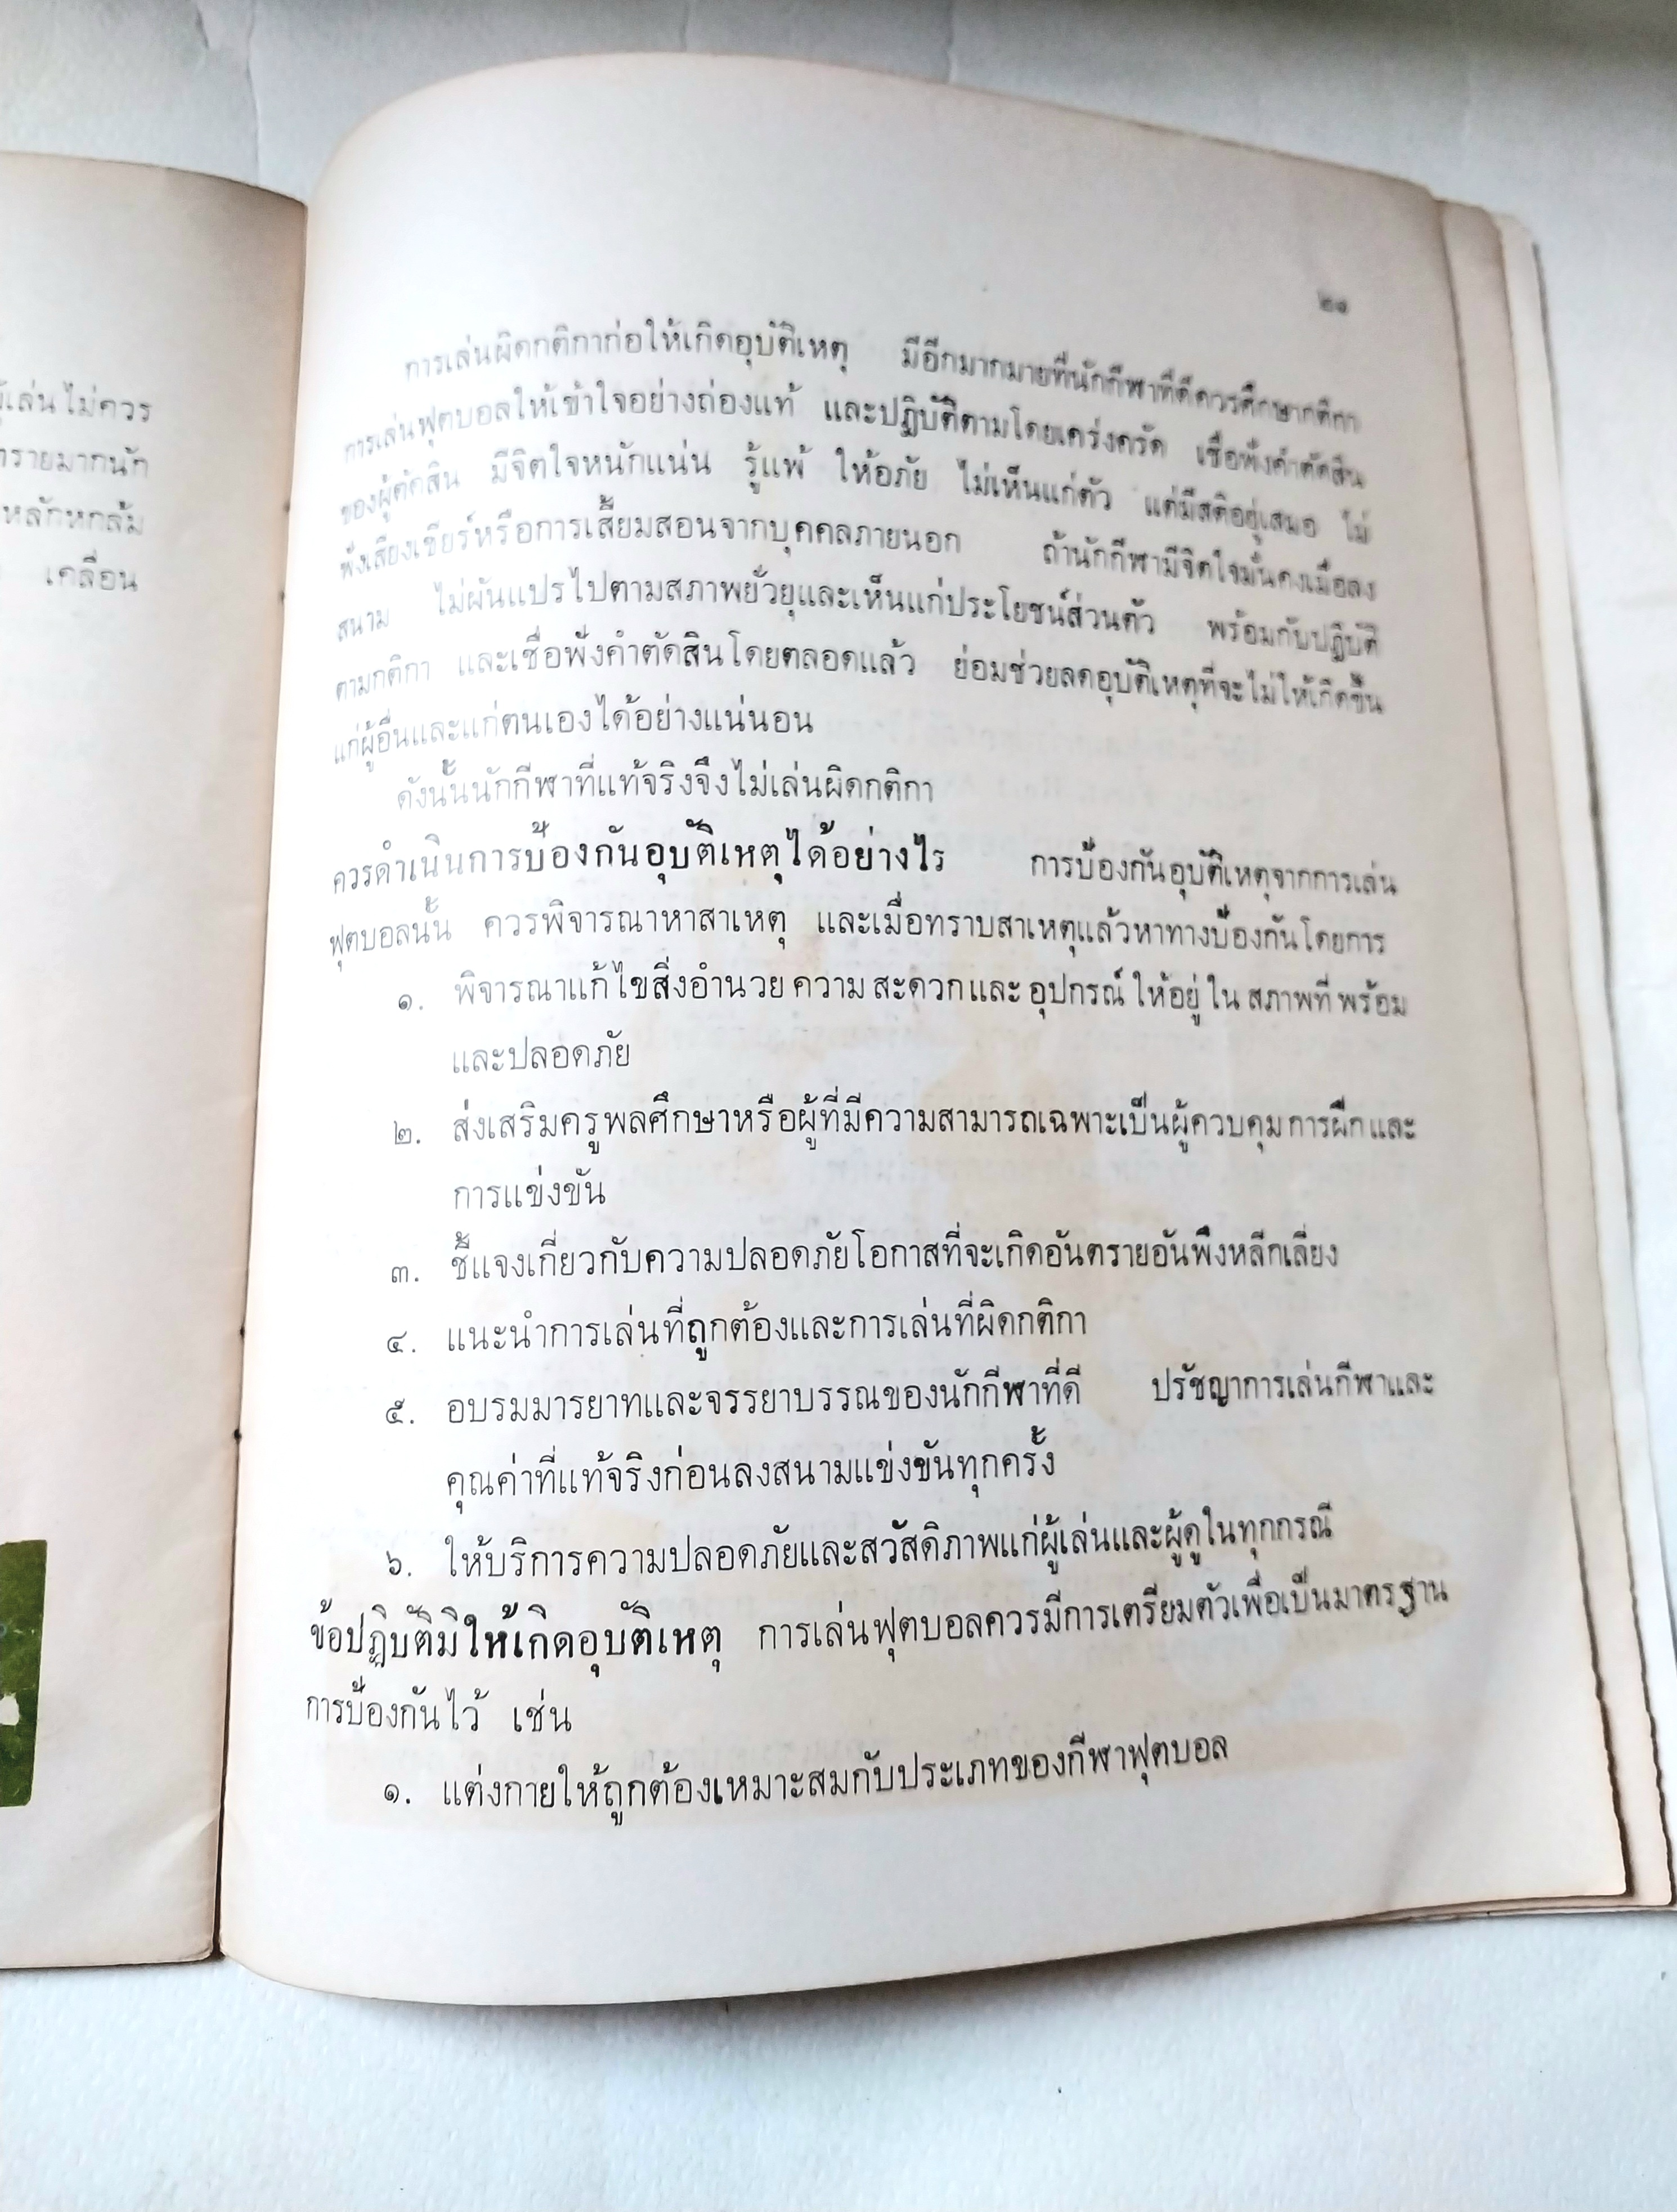 เล่นไม่ควร
รายมากนัก
หลักหกล้ม
เคลื่อน
๒๑
การเล่นผิดกติกาก่อให้เกิดอุบัติเหตุ มีอีกมากมายที่นักกีฬาที่ดีควรศึกษากติกา
การเล่นฟุตบอลให้เข้าใจอย่างถ่องแท้ และปฏิบัติตามโดยเคร่งครัด เชื่อฟังคำตัดสิน
ของผู้ตัดสิน มีจิตใจหนักแน่น รู้แพ้ ให้อภัย ไม่เห็นแก่ตัว แต่มีสติอยู่เสมอ ไม่
ฟังเสียงเชียร์หรือการเสี้ยมสอนจากบุคคลภายนอก ถ้านักกีฬามีจิตใจมั่นคงเมื่อลง
สนาม ไม่ผันแปรไปตามสภาพยั่วยุและเห็นแก่ประโยชน์ส่วนตัว พร้อมกับปฏิบัติ
ตามกติกา และเชื่อฟังคำตัดสินโดยตลอดแล้ว ย่อมช่วยลดอุบัติเหตุที่จะไม่ให้เกิดขึ้น
แก่ผู้อื่นและแก่ตนเองได้อย่างแน่นอน
ดังนั้นนักกีฬาที่แท้จริงจึงไม่เล่นผิดกติกา
ควรดำเนินการป้องกันอุบัติเหตุได้อย่างไร การป้องกันอุบัติเหตุจากการเล่น
ฟุตบอลนั้น ควรพิจารณาหาสาเหตุ และเมื่อทราบสาเหตุแล้วหาทางป้องกันโดยการ
๑. พิจารณาแก้ไขสิ่งอำนวยความสะดวกและอุปกรณ์ให้อยู่ในสภาพที่พร้อม
และปลอดภัย
๒. ส่งเสริมครูพลศึกษาหรือผู้ที่มีความสามารถเฉพาะเป็นผู้ควบคุมการฝึกและ
การแข่งขัน
๓. ชี้แจงเกี่ยวกับความปลอดภัยโอกาสที่จะเกิดอันตรายอันพึงหลีกเลี่ยง
๔. แนะนำการเล่นที่ถูกต้องและการเล่นที่ผิดกติกา
๕. อบรมมารยาทและจรรยาบรรณของนักกีฬาที่ดี ปรัชญาการเล่นกีฬาและ
คุณค่าที่แท้จริงก่อนลงสนามแข่งขันทุกครั้ง
๖. ให้บริการความปลอดภัยและสวัสดิภาพแก่ผู้เล่นและผู้ดูในทุกกรณี
ข้อปฏิบัติมิให้เกิดอุบัติเหตุ การเล่นฟุตบอลควรมีการเตรียมตัวเพื่อเป็นมาตรฐาน
การป้องกันไว้ เช่น
๑. แต่งกายให้ถูกต้องเหมาะสมกับประเภทของกีฬาฟุตบอล